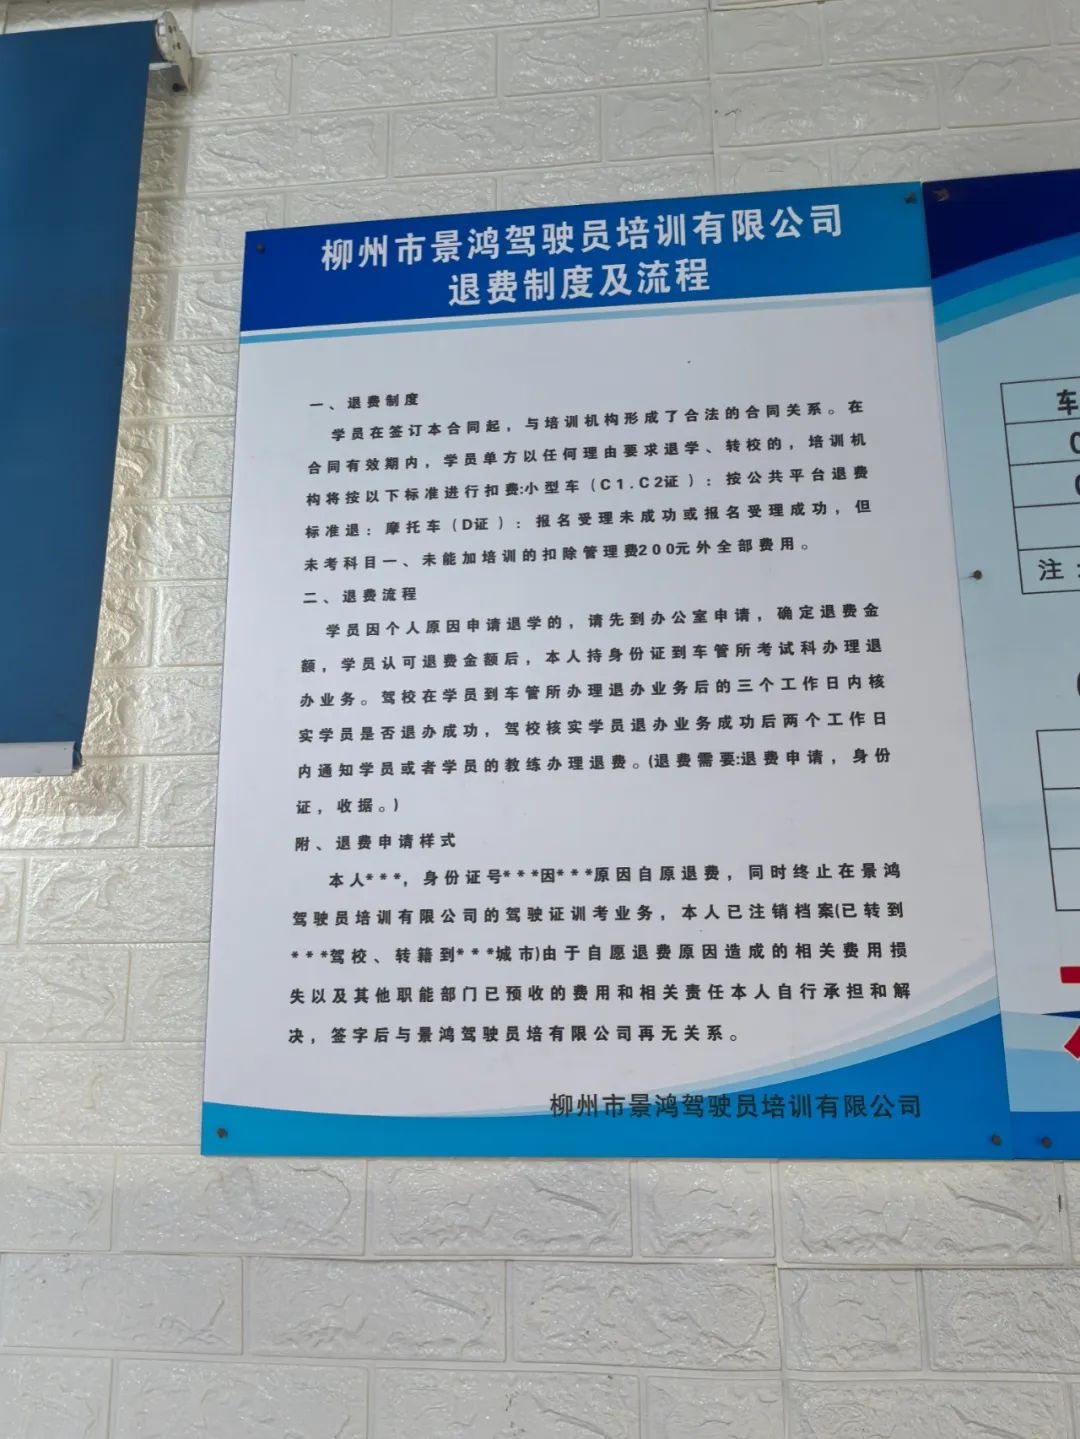 柳州市景鸿驾驶员培训有限公司
退费制度及流程
一、退费制度
学员在签订本合同起，与培训机构形成了合法的合同关系。在
合同有效期内，学员单方以任何理由要求退学、转校的，培训机
构将按以下标准进行扣费:小型车（C1.C2证）：按公共平台退费
标准退：摩托车（D证）：报名受理未成功或报名受理成功，但
未考科目一、未能加培训的扣除管理费200元外全部费用。
二、退费流程
学员因个人原因申请退学的，请先到办公室申请，确定退费金
额，学员认可退费金额后，本人持身份证到车管所考试科办理退
办业务。驾校在学员到车管所办理退办业务后的三个工作日内核
实学员是否退办成功，驾校核实学员退办业务成功后两个工作日
内通知学员或者学员的教练办理退费。(退费需要:退费申请，身份
证，收据。)
附、退费申请样式
本人***，身份证号***因***原因自原退费，同时终止在景鸿
驾驶员培训有限公司的驾驶证训考业务，本人已注销档案(已转到
***驾校、转籍到***城市)由于自愿退费原因造成的相关费用损
失以及其他职能部门已预收的费用和相关责任本人自行承担和解
决，签字后与景鸿驾驶员培有限公司再无关系。
柳州市景鸿驾驶员培训有限公司
车
注：